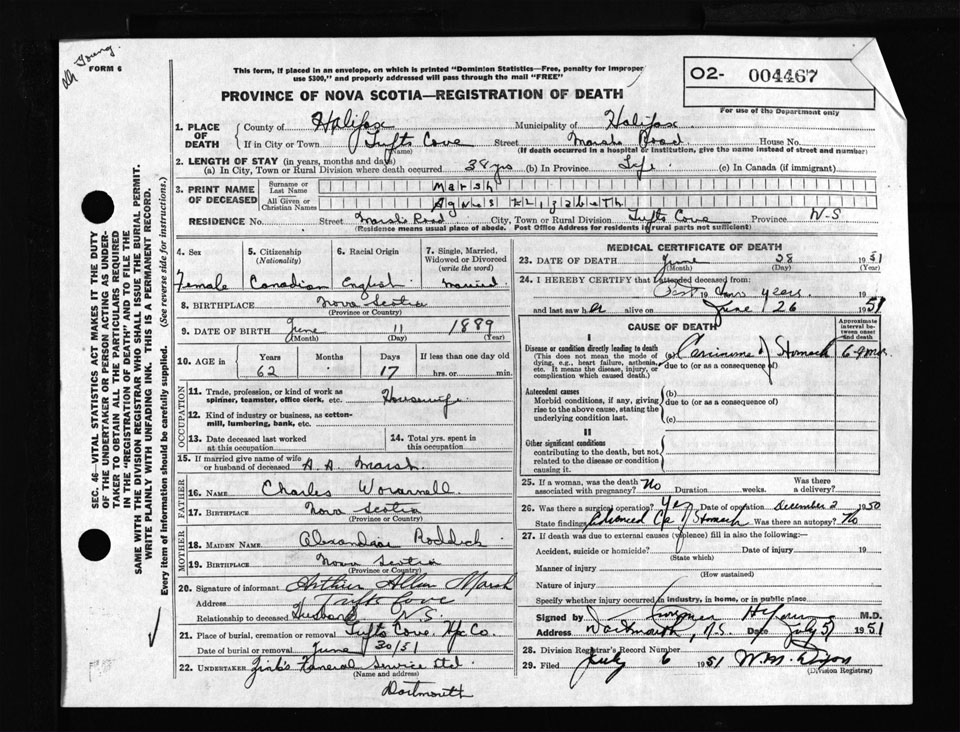 Dr Young.
FORM 6
This form, if placed in an envelope, on which is printed "Dominion Statistics—Free, penalty for improper
use $300," and properly addressed will pass through the mail "FREE"
O2- 004467
For use of the Department only
PROVINCE OF NOVA SCOTIA—REGISTRATION OF DEATH
1. PLACE OF DEATH County of Halifax Municipality of Halifax
If in City or Town Tufts Cove Street Marsh's Road House No.
(Name) (If death occurred in a hospital or institution, give the name instead of street and number)
2. LENGTH OF STAY (in years, months and days)
(a) In City, Town or Rural Division where death occurred 38 yrs (b) In Province Life (c) In Canada (if immigrant)
3. PRINT NAME OF DECEASED Surname or Last Name Marsh
All Given or Christian Names Agnes Elizabeth
RESIDENCE No. Street Marsh's Road City, Town or Rural Division Tufts Cove Province N-S
(Residence means usual place of abode. Post Office Address for residents in rural parts not sufficient)
4. Sex 5. Citizenship (Nationality) 6. Racial Origin 7. Single, Married, Widowed or Divorced (write the word)
Female Canadian English Married
8. BIRTHPLACE Nova Scotia
(Province or Country)
9. DATE OF BIRTH June 11 1889
(Month) (Day) (Year)
10. AGE in Years Months Days If less than one day old
62 · 17 hrs. or min.
OCCUPATION
11. Trade, profession, or kind of work as spinner, teamster, office clerk, etc. Housewife
12. Kind of industry or business, as cotton-mill, lumbering, bank, etc.
13. Date deceased last worked at this occupation 14. Total yrs. spent in this occupation
15. If married give name of wife or husband of deceased A. A. Marsh.
FATHER
16. NAME Charles
17. BIRTHPLACE Nova Scotia
(Province or Country)
MOTHER
18. MAIDEN NAME Roddick
19. BIRTHPLACE Nova Scotia
(Province or Country)
20. Signature of informant Arthur Allan Marsh
Address Tufts Cove
Relationship to deceased Husband N.S.
21. Place of burial, cremation or removal Tufts Cove. Hfx Co.
Date of burial or removal June 30/51
22. UNDERTAKER Zink's Funeral Service Ltd.
(Name and address)
Dartmouth
MEDICAL CERTIFICATE OF DEATH
23. DATE OF DEATH June 28 1951
(Month) (Day) (Year)
24. I HEREBY CERTIFY that I attended deceased from:
19 years. 19
and last saw her alive on June 26 1951
CAUSE OF DEATH
Approximate interval between onset and death
I
Disease or condition directly leading to death (a) Carcinoma of Stomach 6-9 mos.
(This does not mean the mode of dying, e.g., heart failure, asthenia, etc. It means the disease, injury, or complication which caused death.)
due to (or as a consequence of)
Antecedent causes
Morbid conditions, if any, giving rise to the above cause, stating the underlying condition last.
(b)
due to (or as a consequence of)
(c)
II
Other significant conditions
contributing to the death, but not related to the disease or condition causing it.
25. If a woman, was the death associated with pregnancy? No Duration weeks. Was there a delivery?
26. Was there a surgical operation? Yes Date of operation December 2 1950
State findings Advanced Ca of Stomach Was there an autopsy? No
27. If death was due to external causes (violence) fill in also the following:—
Accident, suicide or homicide? Date of injury 19
(State which)
Manner of injury
(How sustained)
Nature of injury
Specify whether injury occurred in industry, in home, or in public place
Signed by M.D.
Address Dartmouth, N.S. Date July 5 1951
28. Division Registrar's Record Number
29. Filed July 6 1951 W.M. Dixon
(Division Registrar)
SEC. 46—VITAL STATISTICS ACT MAKES IT THE DUTY
OF THE UNDERTAKER OR PERSON ACTING AS UNDER-
TAKER TO OBTAIN ALL THE PARTICULARS REQUIRED
IN THE "REGISTRATION OF DEATH" AND TO FILE THE
SAME WITH THE DIVISION REGISTRAR WHO SHALL ISSUE THE BURIAL PERMIT.
WRITE PLAINLY WITH UNFADING INK. THIS IS A PERMANENT RECORD.
Every item of information should be carefully supplied. (See reverse side for instructions.)